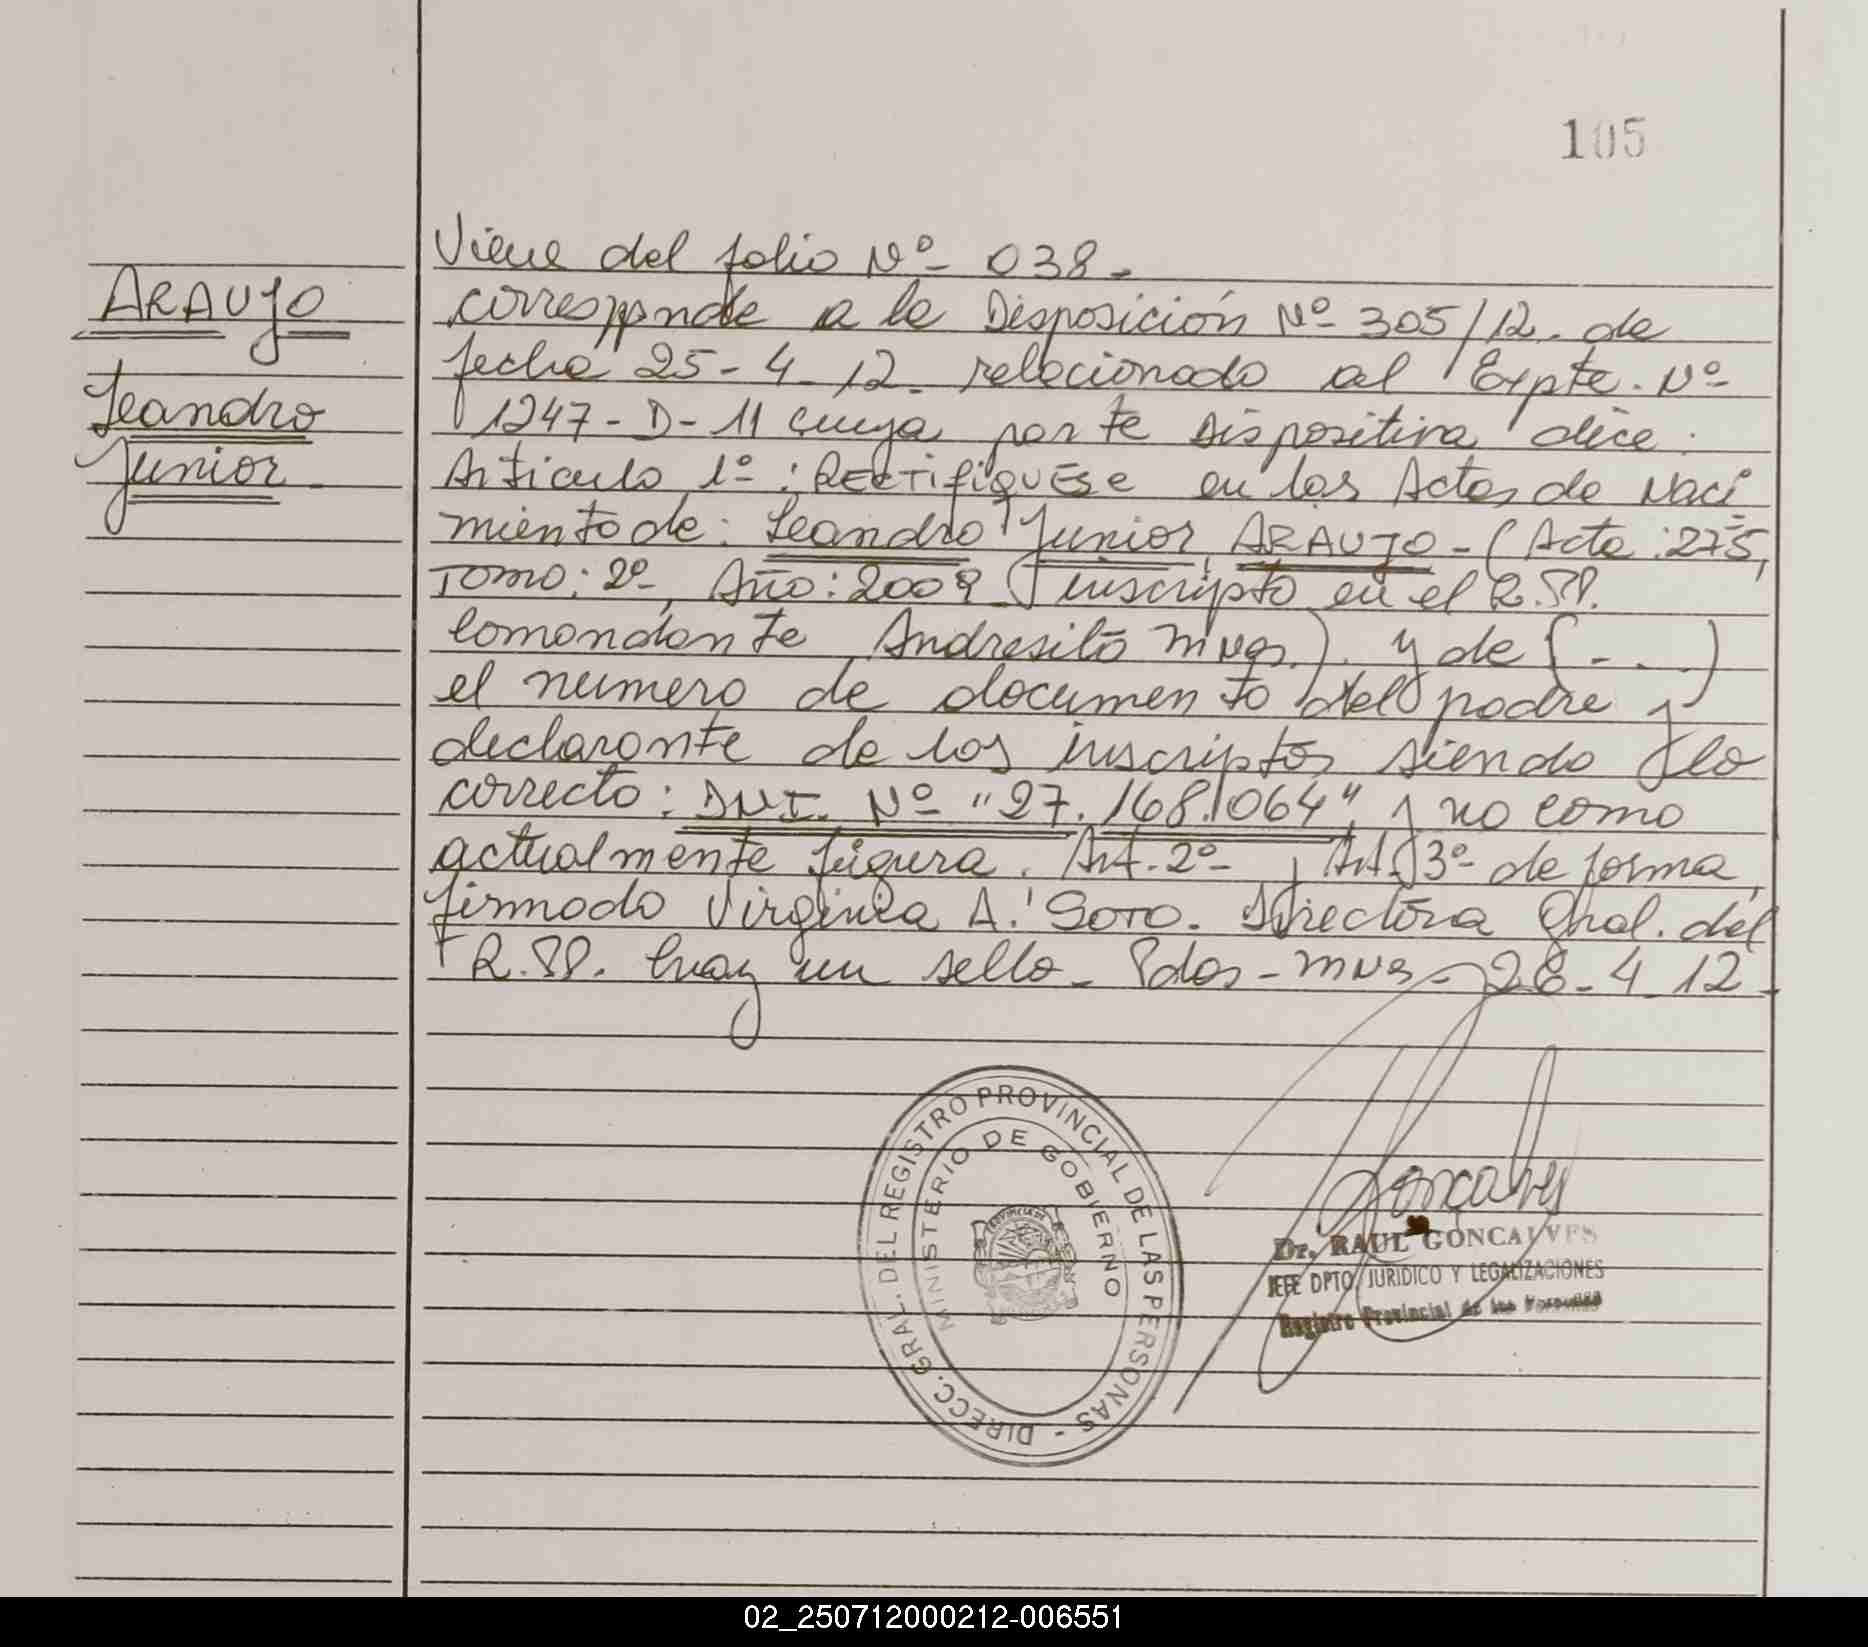 105
ARAUJO
Leandro
Junior
Viene del folio Nº 038.
corresponde a la Disposición Nº 305/12. de
fecha 25-4-12. relacionado al Expte. Nº
1247-D-11 cuya parte dispositiva dice:
Articulo 1º: RECTIFIQUESE en las Actas de Naci
miento de: Leandro Junior ARAUJO - (Acta: 275,
Tomo: 2º, Año: 2009 inscripto en el R.PP.
Comandante Andresito Mnes.). y de (...)
el numero de documento del padre y
declarante de los inscriptos siendo lo
correcto: DNI. Nº "27.168.064" y no como
actualmente figura. Art. 2º, Art. 3º de forma,
firmado Virginia A. Soto. Directora Gral. del
R.PP. hay un sello - Pdas - Mnes - 26-4-12-
DIRECC. GRAL. DEL REGISTRO PROVINCIAL DE LAS PERSONAS -
MINISTERIO DE GOBIERNO
PROVINCIA DE
Goncalves
Dr. RAUL GONCALVES
JEFE DPTO JURIDICO Y LEGALIZACIONES
Registro Provincial de las Personas
02_250712000212-006551